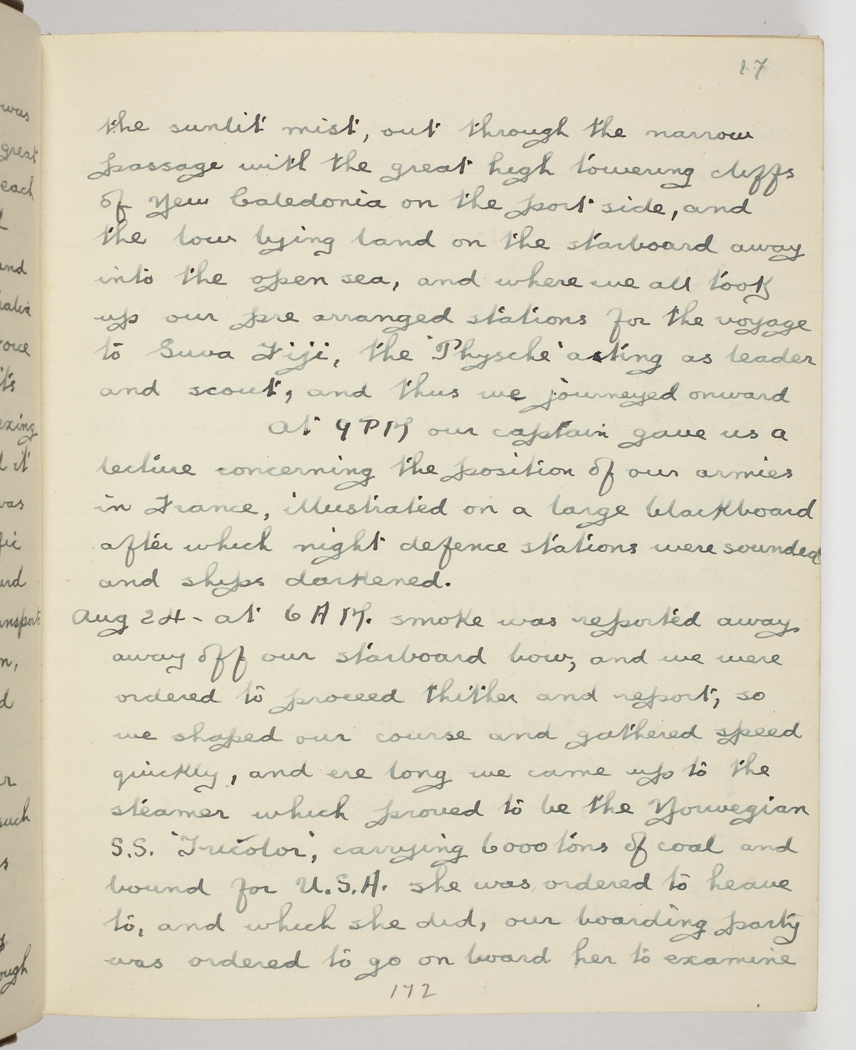 17
the sunlit mist, out through the narrow
passage with the great high towering cliffs
of New Caledonia on the port side, and
the low lying land on the starboard away
into the open sea, and where we all took
up our pre arranged stations for the voyage
to Suva Fiji, the 'Physche' acting as leader
and scout, and thus we journeyed onward
At 9 PM our captain gave us a
lecture concerning the position of our armies
in France, illustrated on a large blackboard
after which night defence stations were sounded
and ships darkened.
Aug 24 - at 6 AM. smoke was reported away
away off our starboard bow, and we were
ordered to proceed thither and report, so
we shaped our course and gathered speed
quickly, and ere long we came up to the
steamer which proved to be the Norwegian
S.S. 'Tricolor', carrying 6000 tons of coal and
bound for U.S.A. she was ordered to heave
to, and which she did, our boarding party
was ordered to go on board her to examine
172